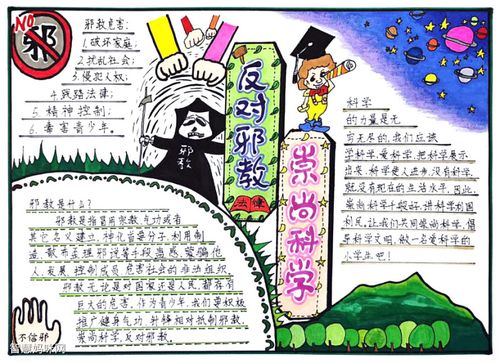 NO
邪
邪教危害:
1.破坏家庭;
2.扰乱社会;
3.侵犯人权;
4.践踏法律;
5.精神控制;
6.毒害青少年。
邪教
反对邪教
法律
崇尚科学
科学
的力量是无
穷无尽的,我们应该
学科学,爱科学,把科学展示
出来,科学使人进步,没有科学,
就没有现在的生活水平,因此,
崇尚科学干好好,讲科学利国
利民,让我们共同崇尚科学,
倡导科学文明,做一名爱科学的
小学生吧!
邪教是什么?
邪教是指冒用宗教,气功或者
其它名义建立,神化首要分子,利用制
造、散布歪理邪说等手段蛊惑、蒙骗他
人,发展、控制成员,危害社会的非法组织
邪教无论是对国家还是人民,都存有
巨大的危害,作为青少年,我们要积极
推广健身气功,
崇尚科学,反对邪教。
不信邪
智慧妈咪网